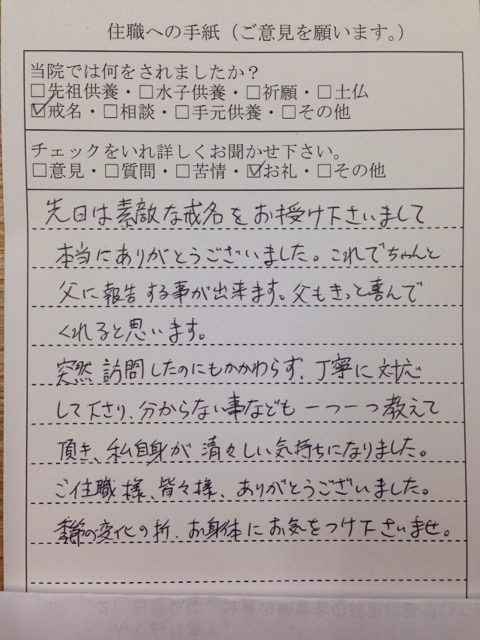 住職への手紙（ご意見を願います。）
当院では何をされましたか？
□先祖供養・□水子供養・□祈願・□土仏
☑戒名・□相談・□手元供養・□その他
チェックをいれ詳しくお聞かせ下さい。
□意見・□質問・□苦情・☑お礼・□その他
先日は素敵な戒名をお授け下さいまして
本当にありがとうございました。これでちゃんと
父に報告する事が出来ます。父もきっと喜んで
くれると思います。
突然訪問したのにもかかわらず、丁寧に対応
して下さり、分からない事なども一つ一つ教えて
頂き、私自身が清々しい気持ちになりました。
ご住職様、皆々様、ありがとうございました。
季節の変化の折、お身体にお気をつけ下さいませ。